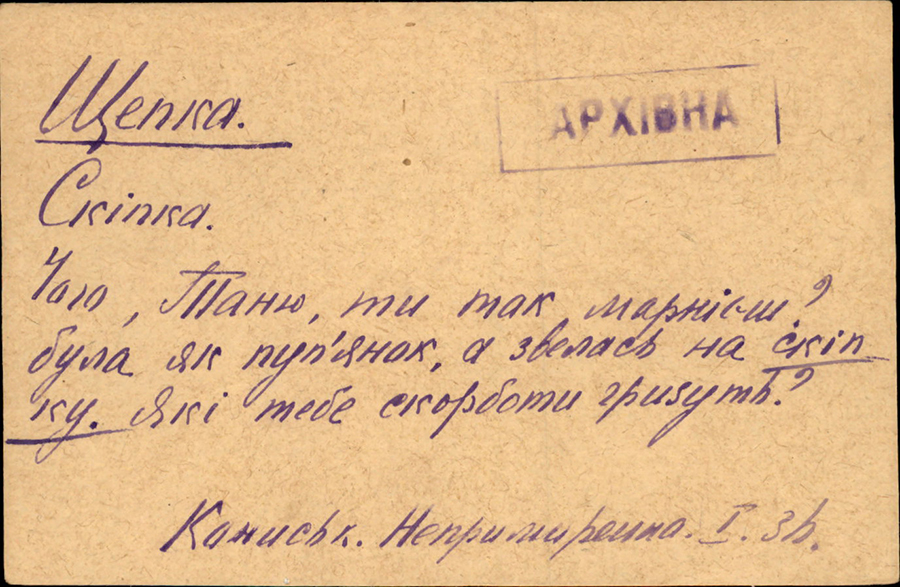 Щепка.
АРХІВНА
Скіпка.
Чого, Таню, ти так марнієш?
була як пуп'янок, а звелась на скіп
ку. Які тебе скорботи гризуть?
Каниськ. Непримиренна. I. зв.